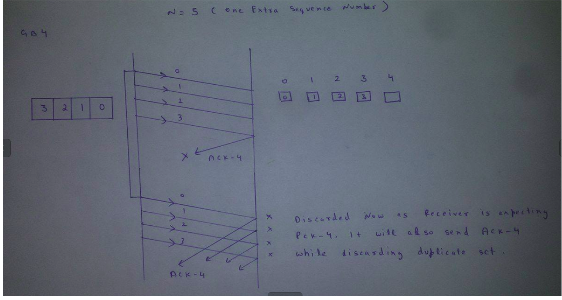 N = 5 ( One Extra Sequence Number )
GB4
0
1
2
3
3 2 1 0
0 1 2 3 4
0 1 2 3
x ACK-4
0
1
2
3
ACK-4
x Discarded Now as Receiver is expecting
x Pck-4. It will also send ACK-4
x while discarding duplicate set.